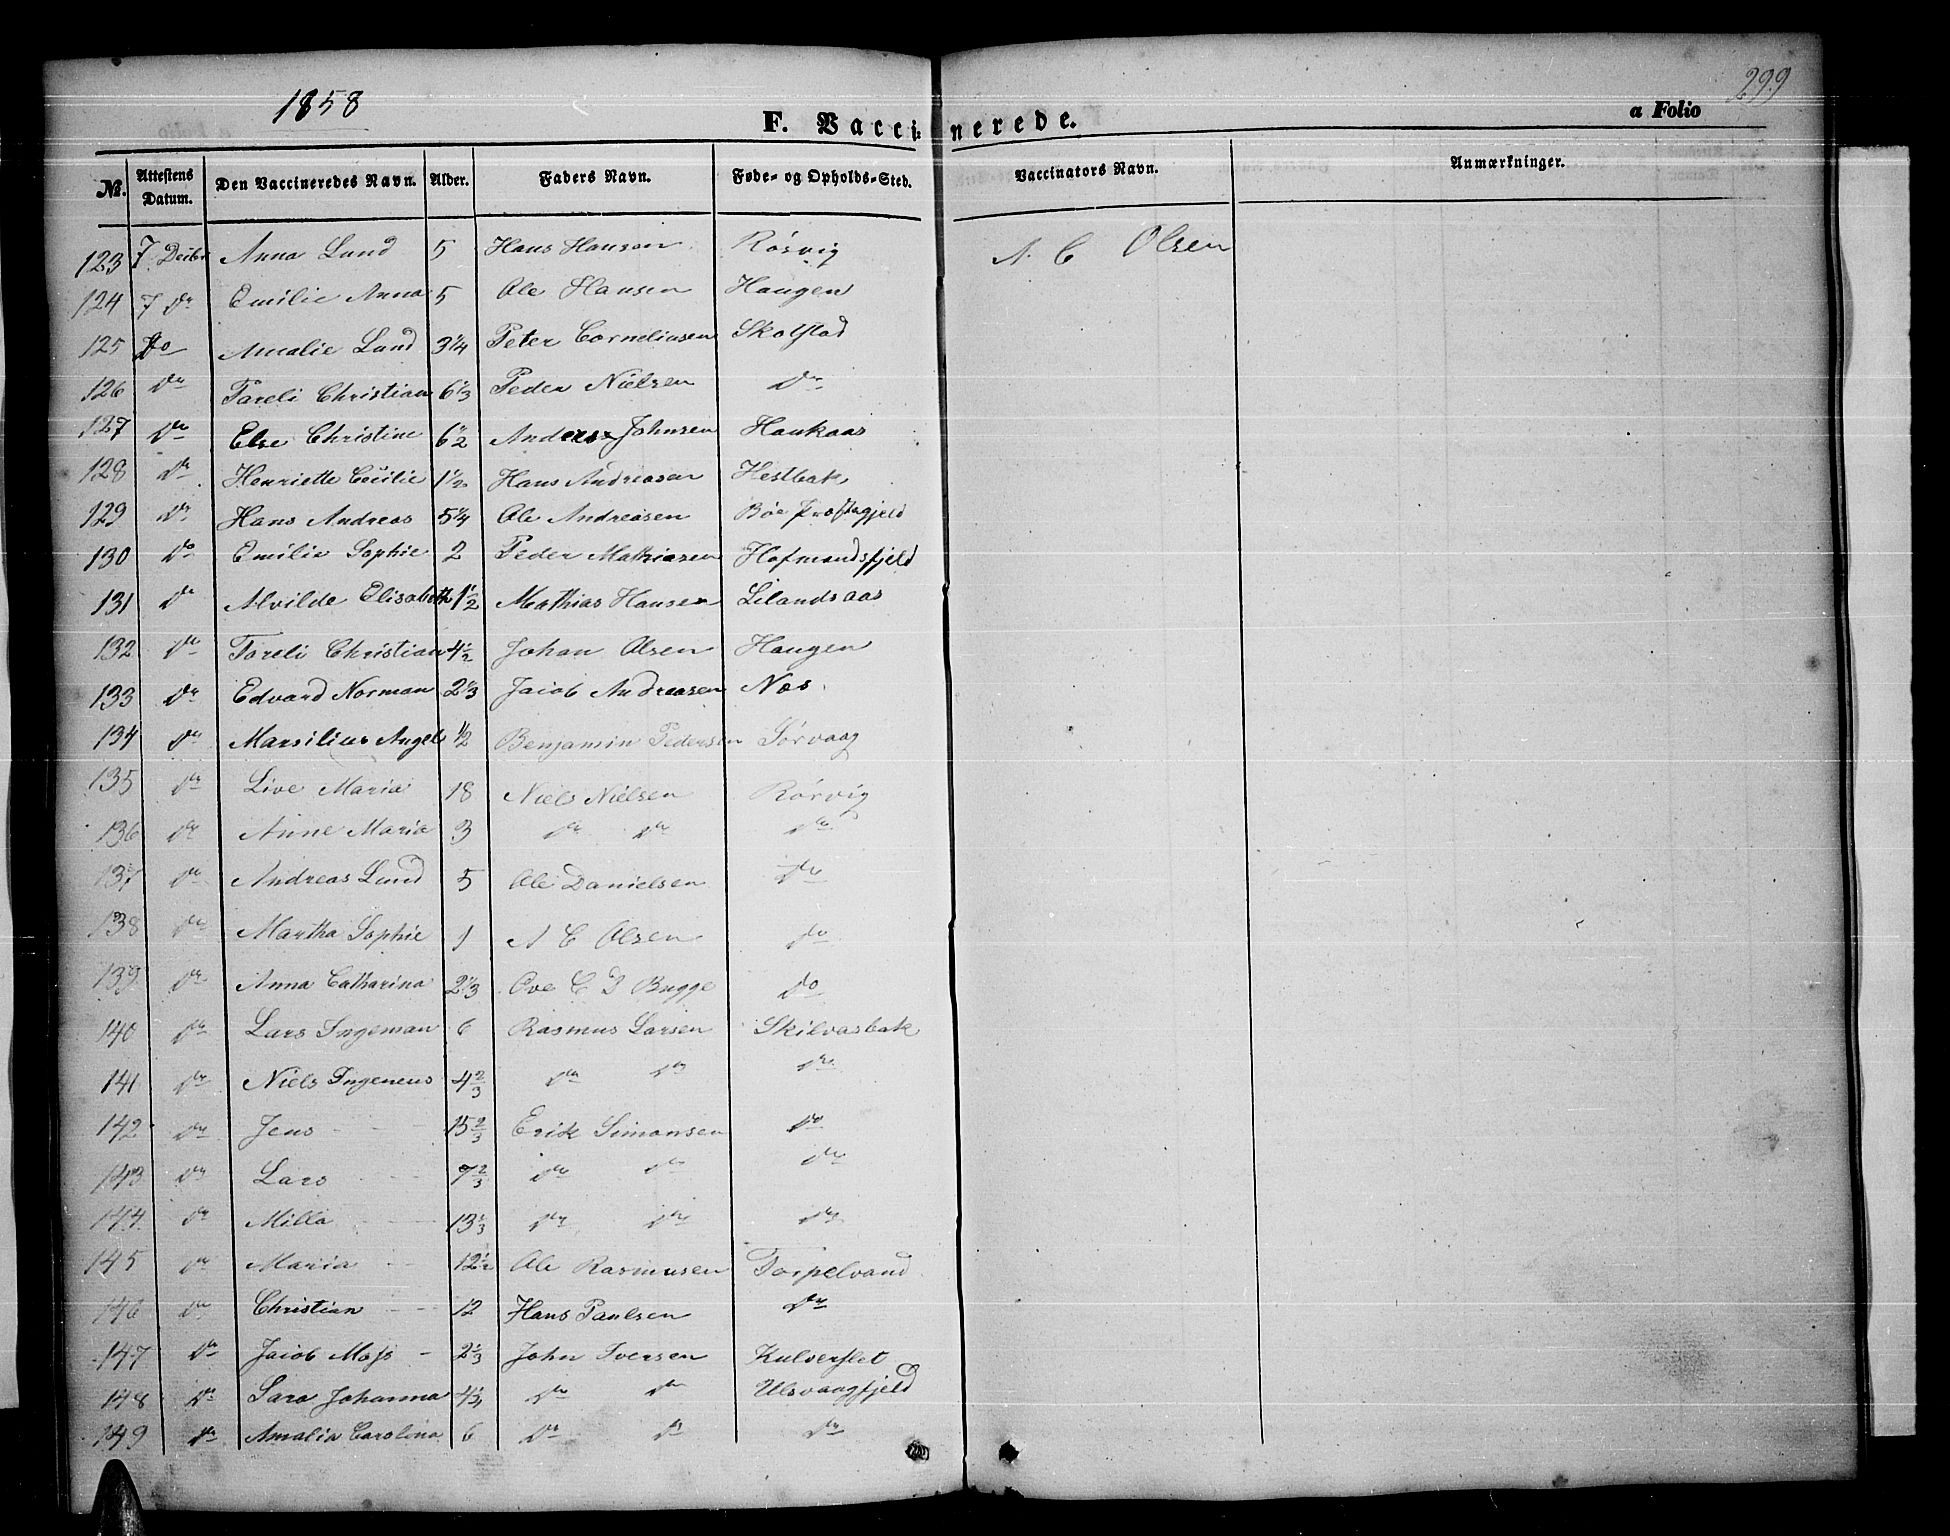 1858
299
F. Vaccinerede.
a Folio
No. Attestens Datum. Den Vaccineredes Navn. Alder. Faders Navn. Føde- og Opholds-Sted. Vaccinators Navn. Anmærkninger.
123 7 Decbr Anna Lund 5 Hans Hansen Rørvig A. C Olsen
124 7 do Emilie Anna 5 Ole Hansen Haugen
125 Do Amalie Lund 3 1/4 Peter Corneliusen Skolstad
126 do Tareli Christian 6 1/3 Peder Nielsen do
127 do Else Christine 6 1/2 Anders Johnsen Haukaas
128 do Henriette Cecilie 1 1/2 Hans Andreasen Hestbak
129 do Hans Andreas 5 1/4 Ole Andreasen Bøe
130 do Emilie Sophie 2 Peder Mathiasen Hofmandsfjeld
131 do Alvilde Elisabeth 1 1/2 Mathias Hansen Lilandsaas
132 do Toreli Christian 4 1/2 Johan Olsen Haugen
133 do Edvard Norman 2 1/3 Jacob Andreasen Nos
134 do Marsilius Angel 1/2 Benjamin Pedersen Sørvaag
135 do Live Maria 18 Niels Nielsen Rørvig
136 do Anne Maria 3 do do do
137 do Andreas Lund 5 Ole Danielsen do
138 do Martha Sophie 1 A C Olsen do
139 do Anna Catharina 2 1/3 Ove C D Bugge do
140 do Lars Ingeman 6 Rasmus Larsen Skilvasbak
141 do Niels Ingeneus 4 2/3 do do do
142 do Jens - - - 15 2/3 Erik Simonsen do
143 do Lars - - - 7 2/3 do do do
144 do Milla - - - 13 1/3 do do do
145 do Maria - - 12 1/2 Ole Rasmusen Torpelvand
146 do Christian - - 12 Hans Paulsen do
147 do Jacob Moss - 2 1/3 John Iversen Kulverslet
148 do Sara Johanna 4 1/3 do do Ulsvaagfjeld
149 do Amalia Carolina 6 do do do